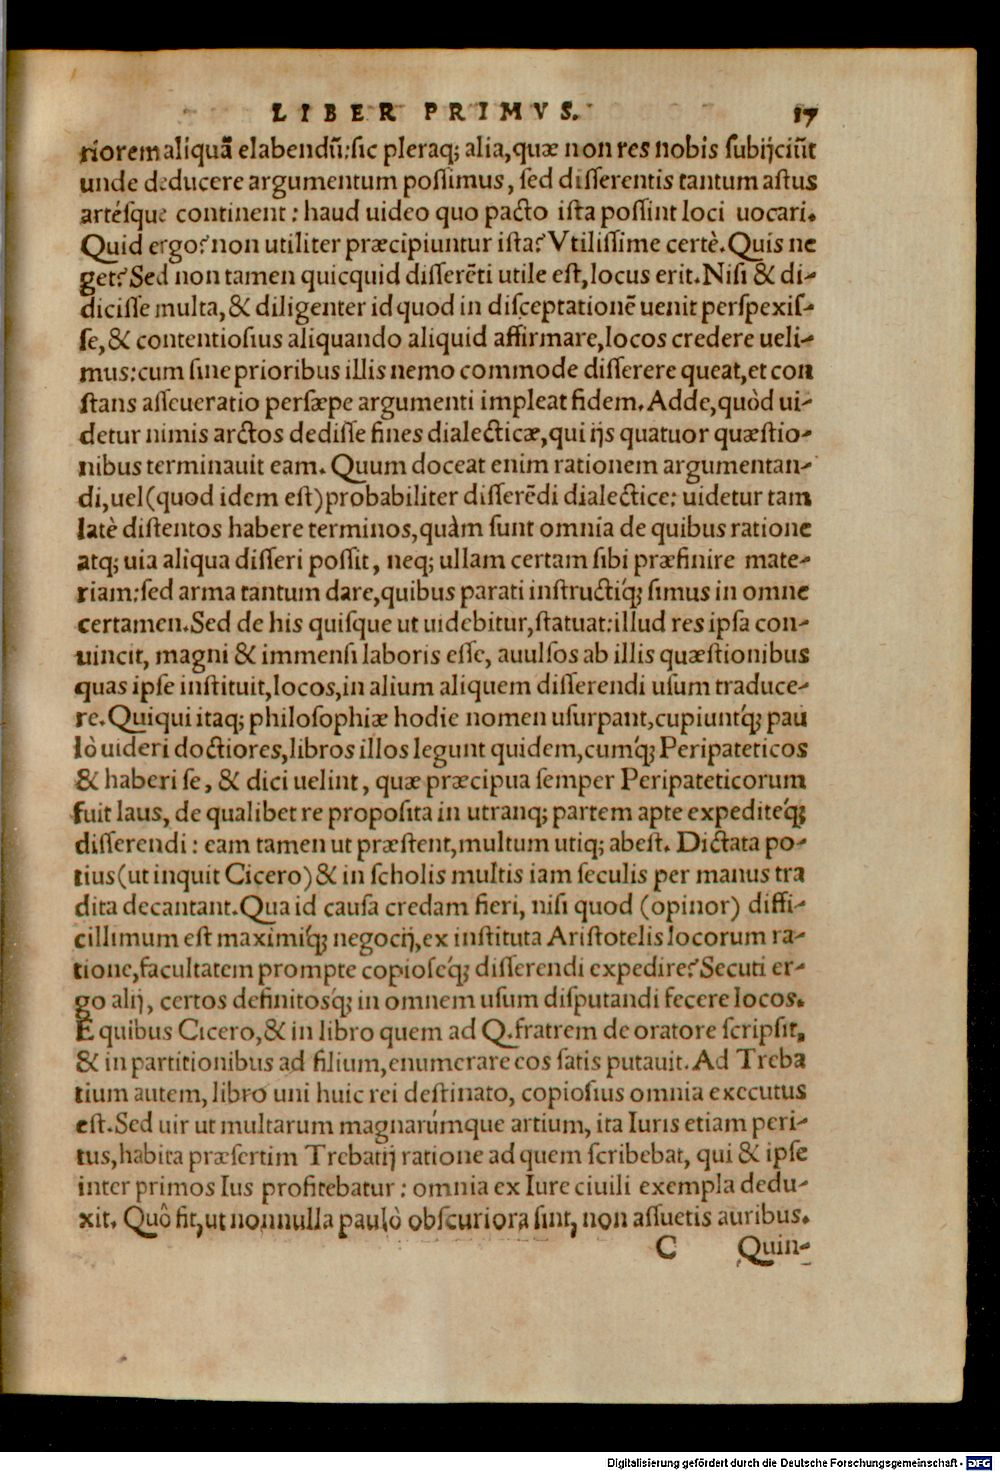 LIBER PRIMVS. 17
riorem aliquã elabendũ: sic pleraq; alia, quæ non res nobis subijciũt
unde deducere argumentum possimus, sed disserentis tantum astus
artésque continent: haud uideo quo pacto ista possint loci uocari.
Quid ergo? non utiliter præcipiuntur ista? Vtilissime certè. Quis ne
get? Sed non tamen quicquid disserẽti utile est, locus erit. Nisi & di-
dicisse multa, & diligenter id quod in disceptationẽ uenit perspexis-
se, & contentiosius aliquando aliquid affirmare, locos credere ueli-
mus: cum sine prioribus illis nemo commode disserere queat, et con
stans asseueratio persæpe argumenti impleat fidem. Adde, quòd ui-
detur nimis arctos dedisse fines dialecticæ, qui ijs quatuor quæstio-
nibus terminauit eam. Quum doceat enim rationem argumentan-
di, uel (quod idem est) probabiliter disserẽdi dialectice: uidetur tam
latè distentos habere terminos, quàm sunt omnia de quibus ratione
atq; uia aliqua disseri possit, neq; ullam certam sibi præfinire mate-
riam: sed arma tantum dare, quibus parati instructiq́; simus in omne
certamen. Sed de his quisque ut uidebitur, statuat: illud res ipsa con-
uincit, magni & immensi laboris esse, auulsos ab illis quæstionibus
quas ipse instituit, locos, in alium aliquem disserendi usum traduce-
re. Quiqui itaq; philosophiæ hodie nomen usurpant, cupiuntq́; pau
lò uideri doctiores, libros illos legunt quidem, cumq́; Peripateticos
& haberi se, & dici uelint, quæ præcipua semper Peripateticorum
fuit laus, de qualibet re proposita in utranq; partem apte expediteq́;
disserendi: eam tamen ut præstent, multum utiq; abest. Dictata po-
tius (ut inquit Cicero) & in scholis multis iam seculis per manus tra
dita decantant. Qua id causa credam fieri, nisi quod (opinor) diffi-
cillimum est maximiq́; negocij, ex instituta Aristotelis locorum ra-
tione, facultatem prompte copioseq́; disserendi expedire? Secuti er-
go alij, certos definitosq́; in omnem usum disputandi fecere locos.
E quibus Cicero, & in libro quem ad Q. fratrem de oratore scripsit,
& in partitionibus ad filium, enumerare eos satis putauit. Ad Treba
tium autem, libro uni huic rei destinato, copiosius omnia executus
est. Sed uir ut multarum magnarúmque artium, ita Iuris etiam peri-
tus, habita præsertim Trebatij ratione ad quem scribebat, qui & ipse
inter primos Ius profitebatur: omnia ex Iure ciuili exempla dedu-
xit. Quô fit, ut nonnulla paulò obscuriora sint, non assuetis auribus.
C Quin-
Digitalisierung gefördert durch die Deutsche Forschungsgemeinschaft - DFG